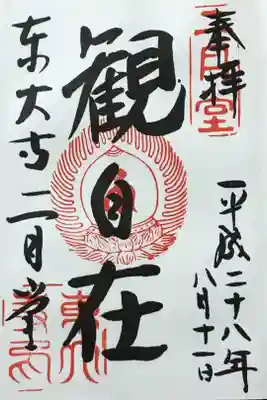 奉拝
平成二十八年
八月十一日
観自在
東大寺二月堂